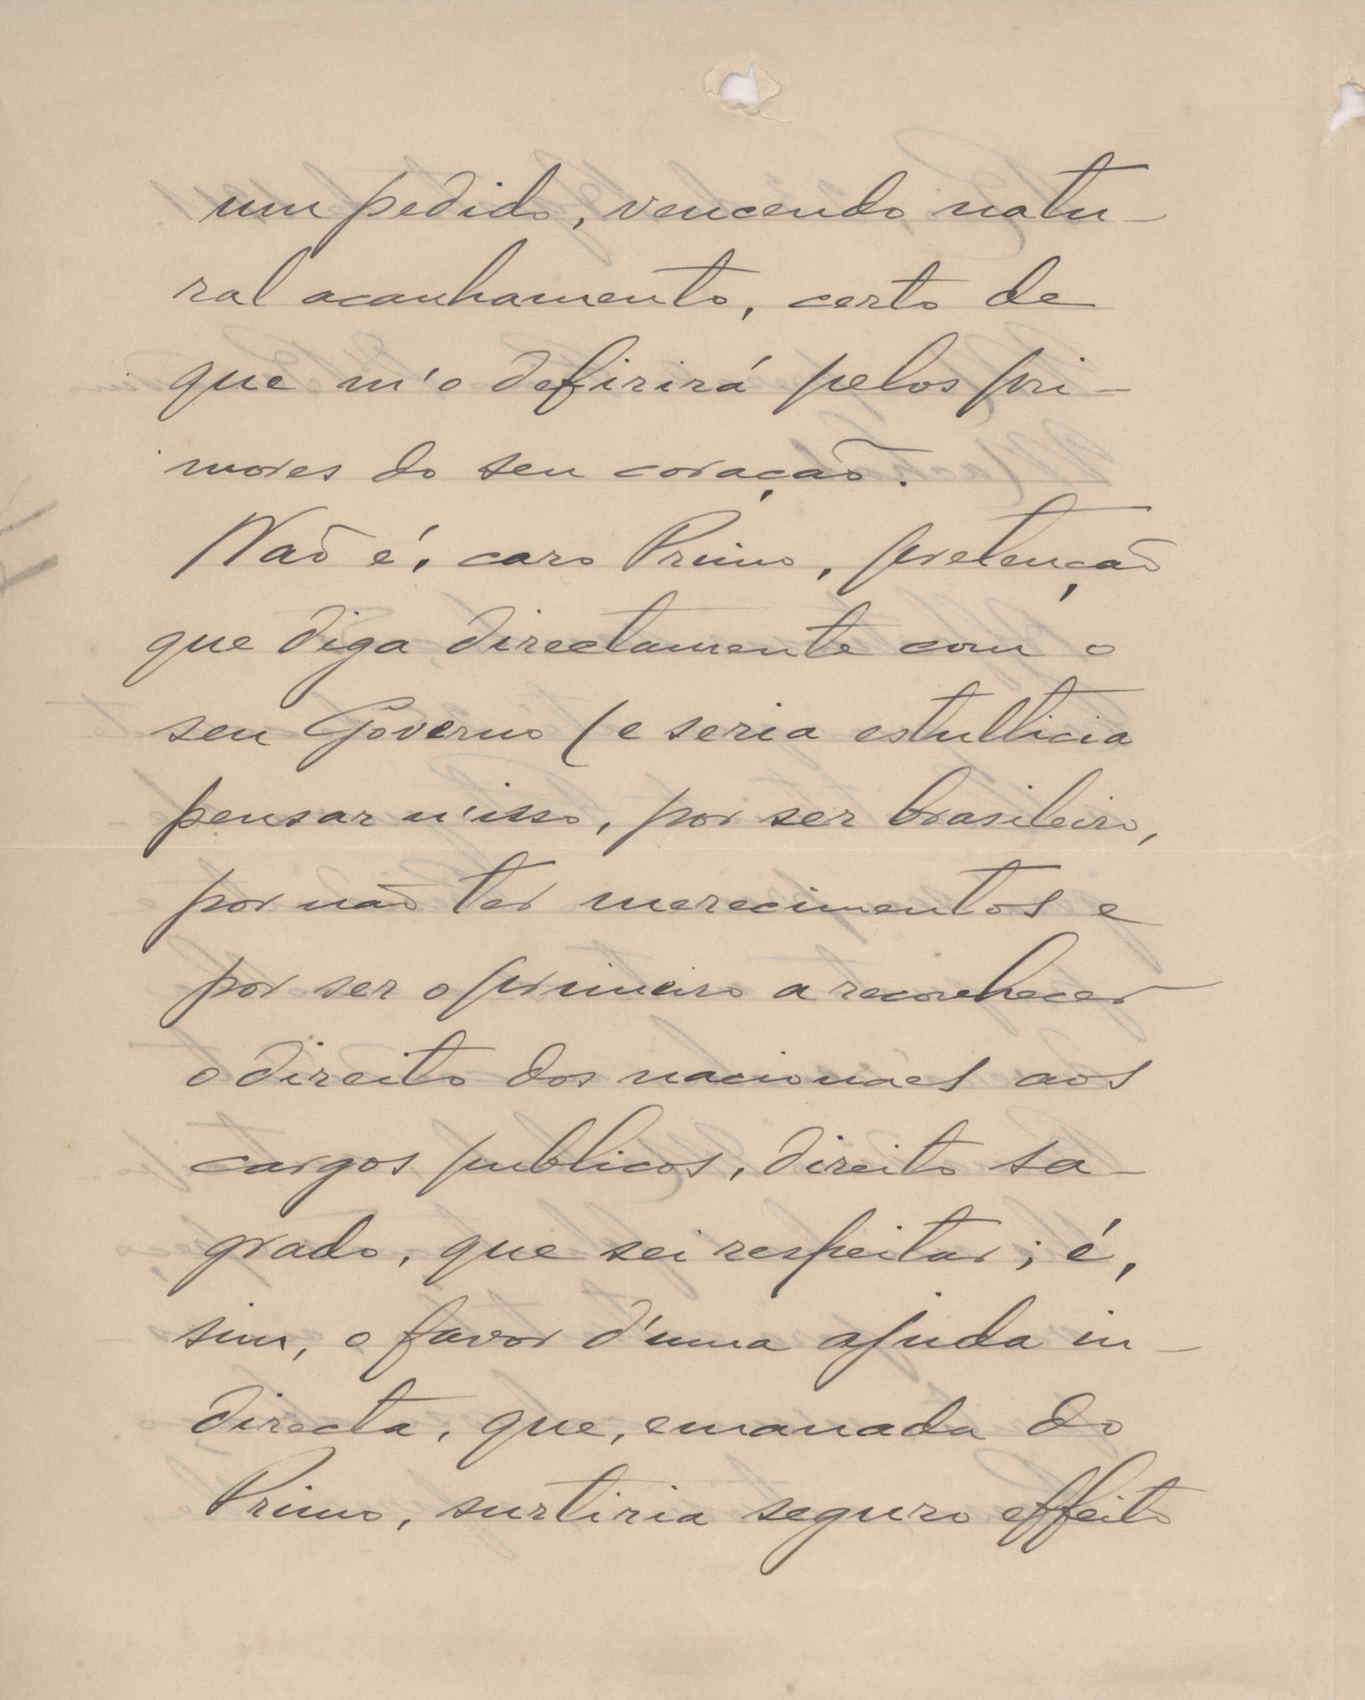 um pedido, vencendo natu-
ral acanhamento, certo de
que m'o defirirá pelos pri-
mores do seu coração.
Não é, caro Primo, pretenção
que diga directamente com o
seu Governo (e seria estullticia
pensar n'isso, por ser brasileiro,
por não ter merecimentos e
por ser o primeiro a reconhecer
o direito dos nacionáes aos
cargos publicos, direito sa-
grado, que sei respeitar; é,
sim, o favor d'uma ajuda in-
directa, que, emanada do
Primo, surtiria seguro effeito